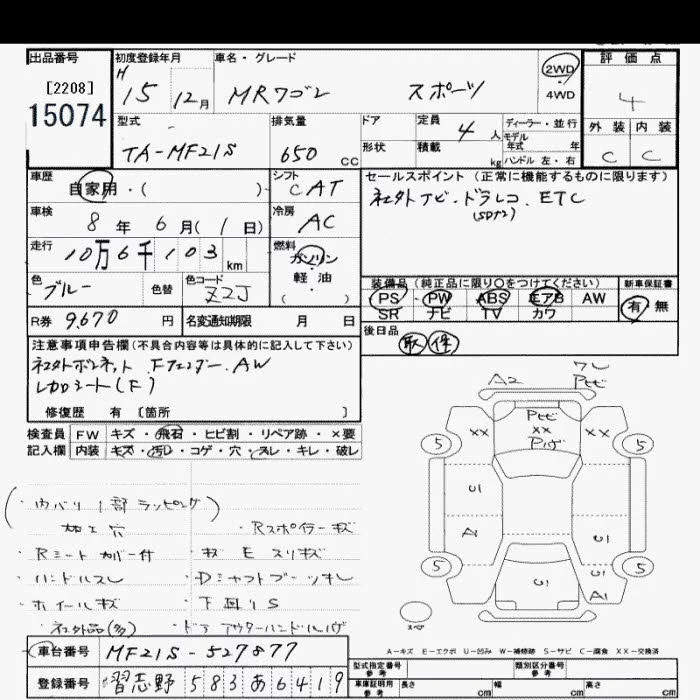 出品番号 初度登録年月 車名・グレード 評価点
[2208] H 15年 12月 MRワゴン スポーツ 2WD 4WD 4
15074 外装 内装
型式 排気量 ドア 定員 4人 ディーラー・並行
モデル年式 年
TA-MF21S 650 CC 形状 積載 kg ハンドル 左・右 C C
車歴 シフト セールスポイント(正常に機能するものに限ります)
自家用・( ) CAT 社外ナビ・ドラレコ・ETC
車検 冷房 (SDナシ)
8年 6月(1日) AC
走行 燃料
10万6千103km ガソリン
軽・油
( )
装備品(純正品に限り○をつけてください) 新車保証書
色 色替 色コード
ブルー Z2J
PS PW ABS エアB AW 有・無
SR ナビ TV カワ
R券 9,670円 名変通知期限 月 日
後日品 取 保
注意事項申告欄(不具合内容等は具体的に記入して下さい)
社外ボンネット Fフェンダー AW
レカロシート(F)
修復歴 有〔箇所 〕
検査員 FW キズ・飛石・ヒビ割・リペア跡・×要
記入欄 内装 キズ・汚レ・コゲ・穴・スレ・キレ・破レ
A2 ワレ
Pヒビ
Pヒビ
XX XX XX
Pハゲ
5 5
U1
A1 U1
5 5
U1 U1
A1
スペア
(・内バリ1部ラッピング)
加工穴 ・Rスポイラーキズ
・Rシートカバー付 ・キズ E スリキズ
・ハンドルスレ ・Dシャフトブーツキレ
・ホイールキズ ・下回りS
・社外品(多) ・ドアアウターハンドルハゲ
A-キズ E-エクボ U-凹み W-補修跡 S-サビ C-腐食 XX-交換済
車台番号 MF21S-527877
型式指定番号 参考 類別区分番号 参考
登録番号 習志野 583 あ 6419
車庫証明用 参考 長さ cm 幅 cm 高さ cm